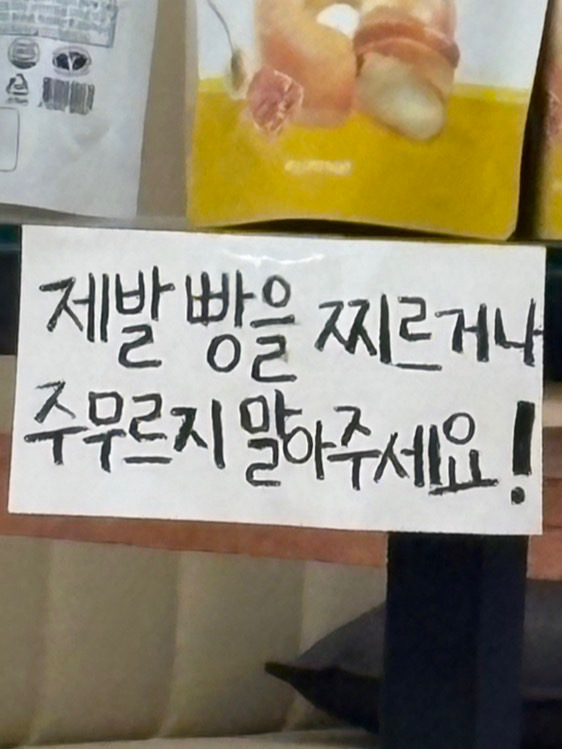 제발 빵을 찌르거나
주무르지 말아주세요!